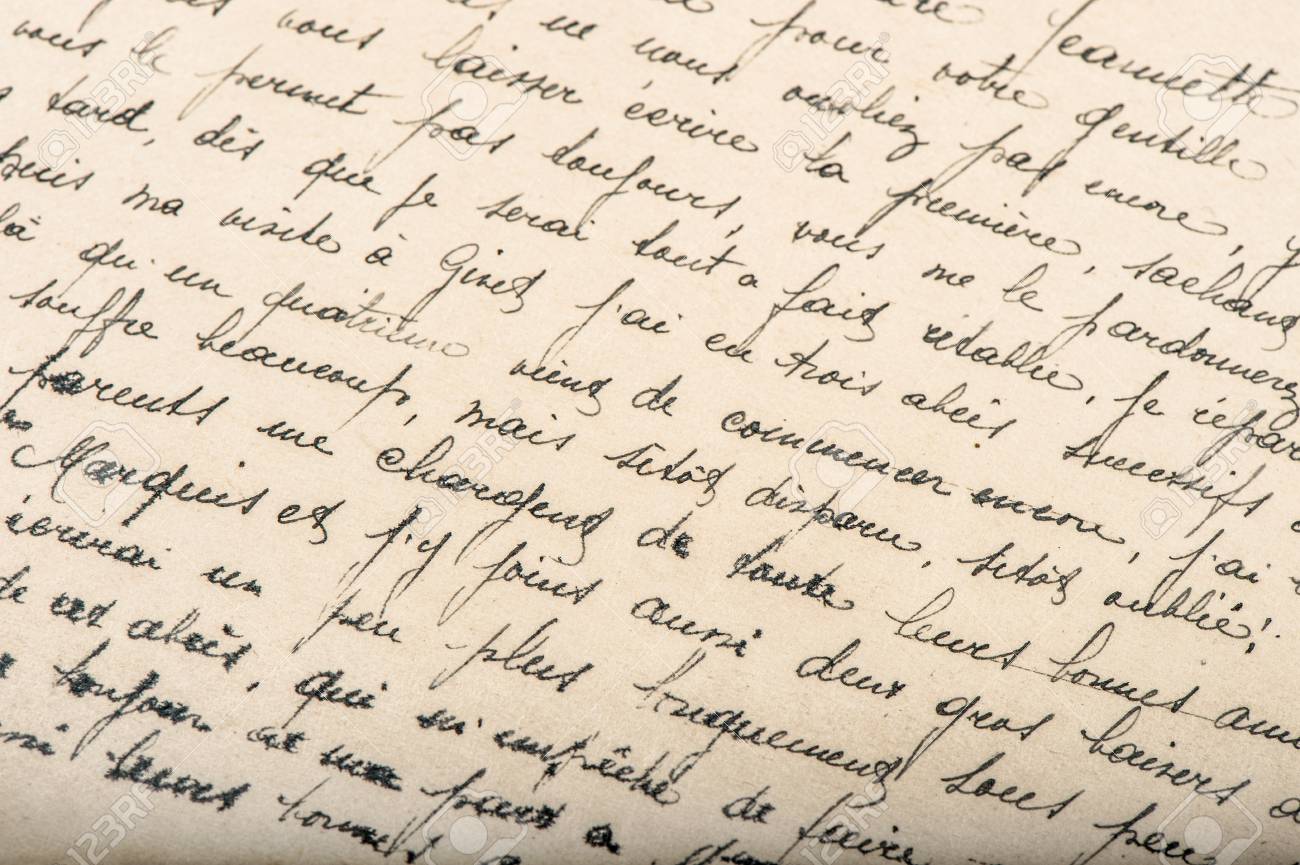 Jeannette
pour votre gentille
ne nous oubliez pas encore, y
vous laisser écrire la première, sachant
vous le permet pas toujours, vous me le pardonnerez
s tard, dès que je serai tout à fait rétablie, je répar
puis ma visite à Givet j'ai eu trois abcès successifs
là qu'un quatrième vient de commencer encore, j'ai
souffre beaucoup, mais sitôt disparu, sitôt oublié!
parents me chargent de toute leurs bonnes ami
Marquis et j'y joins aussi deux gros baisers d
écrirai un peu plus longuement sous peu
de cet abcès, qui m'empêche de faire
toujours
leurs bonnes